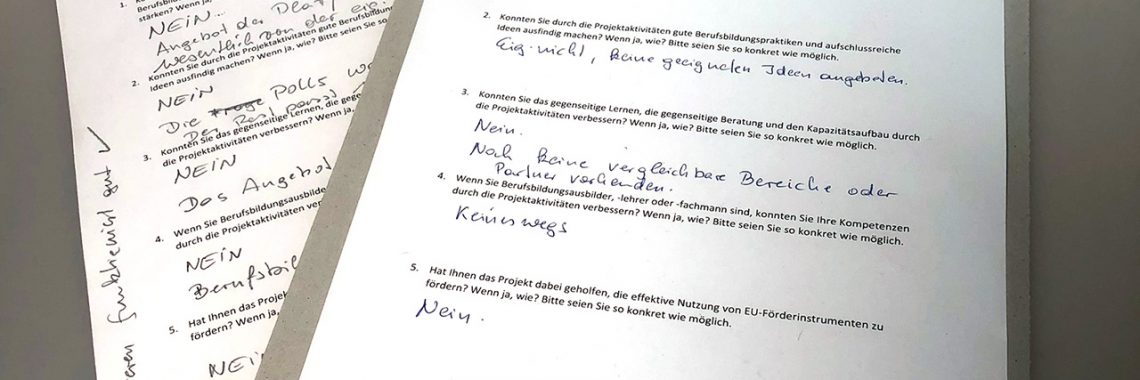 1.
Berufsbild
stärken? Wenn ja,
NEIN...
Angebot der
wesentlich von der eig.
2. Konnten Sie durch die Projektaktivitäten gute Berufsbildung
Ideen ausfindig machen? Wenn ja, wie? Bitte seien Sie so
NEIN
Die Polls
Der Rest passt
3. Konnten Sie das gegenseitige Lernen, die gege
die Projektaktivitäten verbessern? Wenn ja,
NEIN
Das Angebot
4. Wenn Sie Berufsbildungsausbilde
durch die Projektaktivitäten ver
NEIN
Berufsbil
5. Hat Ihnen das Proje
fördern? Wenn ja,
NEI
gut
2. Konnten Sie durch die Projektaktivitäten gute Berufsbildungspraktiken und aufschlussreiche
Ideen ausfindig machen? Wenn ja, wie? Bitte seien Sie so konkret wie möglich.
Eig. nicht, keine geeigneten Ideen angeboten.
3. Konnten Sie das gegenseitige Lernen, die gegenseitige Beratung und den Kapazitätsaufbau durch
die Projektaktivitäten verbessern? Wenn ja, wie? Bitte seien Sie so konkret wie möglich.
Nein.
Noch keine vergleichbare Bereiche oder
Partner vorhanden.
4. Wenn Sie Berufsbildungsausbilder, -lehrer oder -fachmann sind, konnten Sie Ihre Kompetenzen
durch die Projektaktivitäten verbessern? Wenn ja, wie? Bitte seien Sie so konkret wie möglich.
Keineswegs
5. Hat Ihnen das Projekt dabei geholfen, die effektive Nutzung von EU-Förderinstrumenten zu
fördern? Wenn ja, wie? Bitte seien Sie so konkret wie möglich.
Nein.